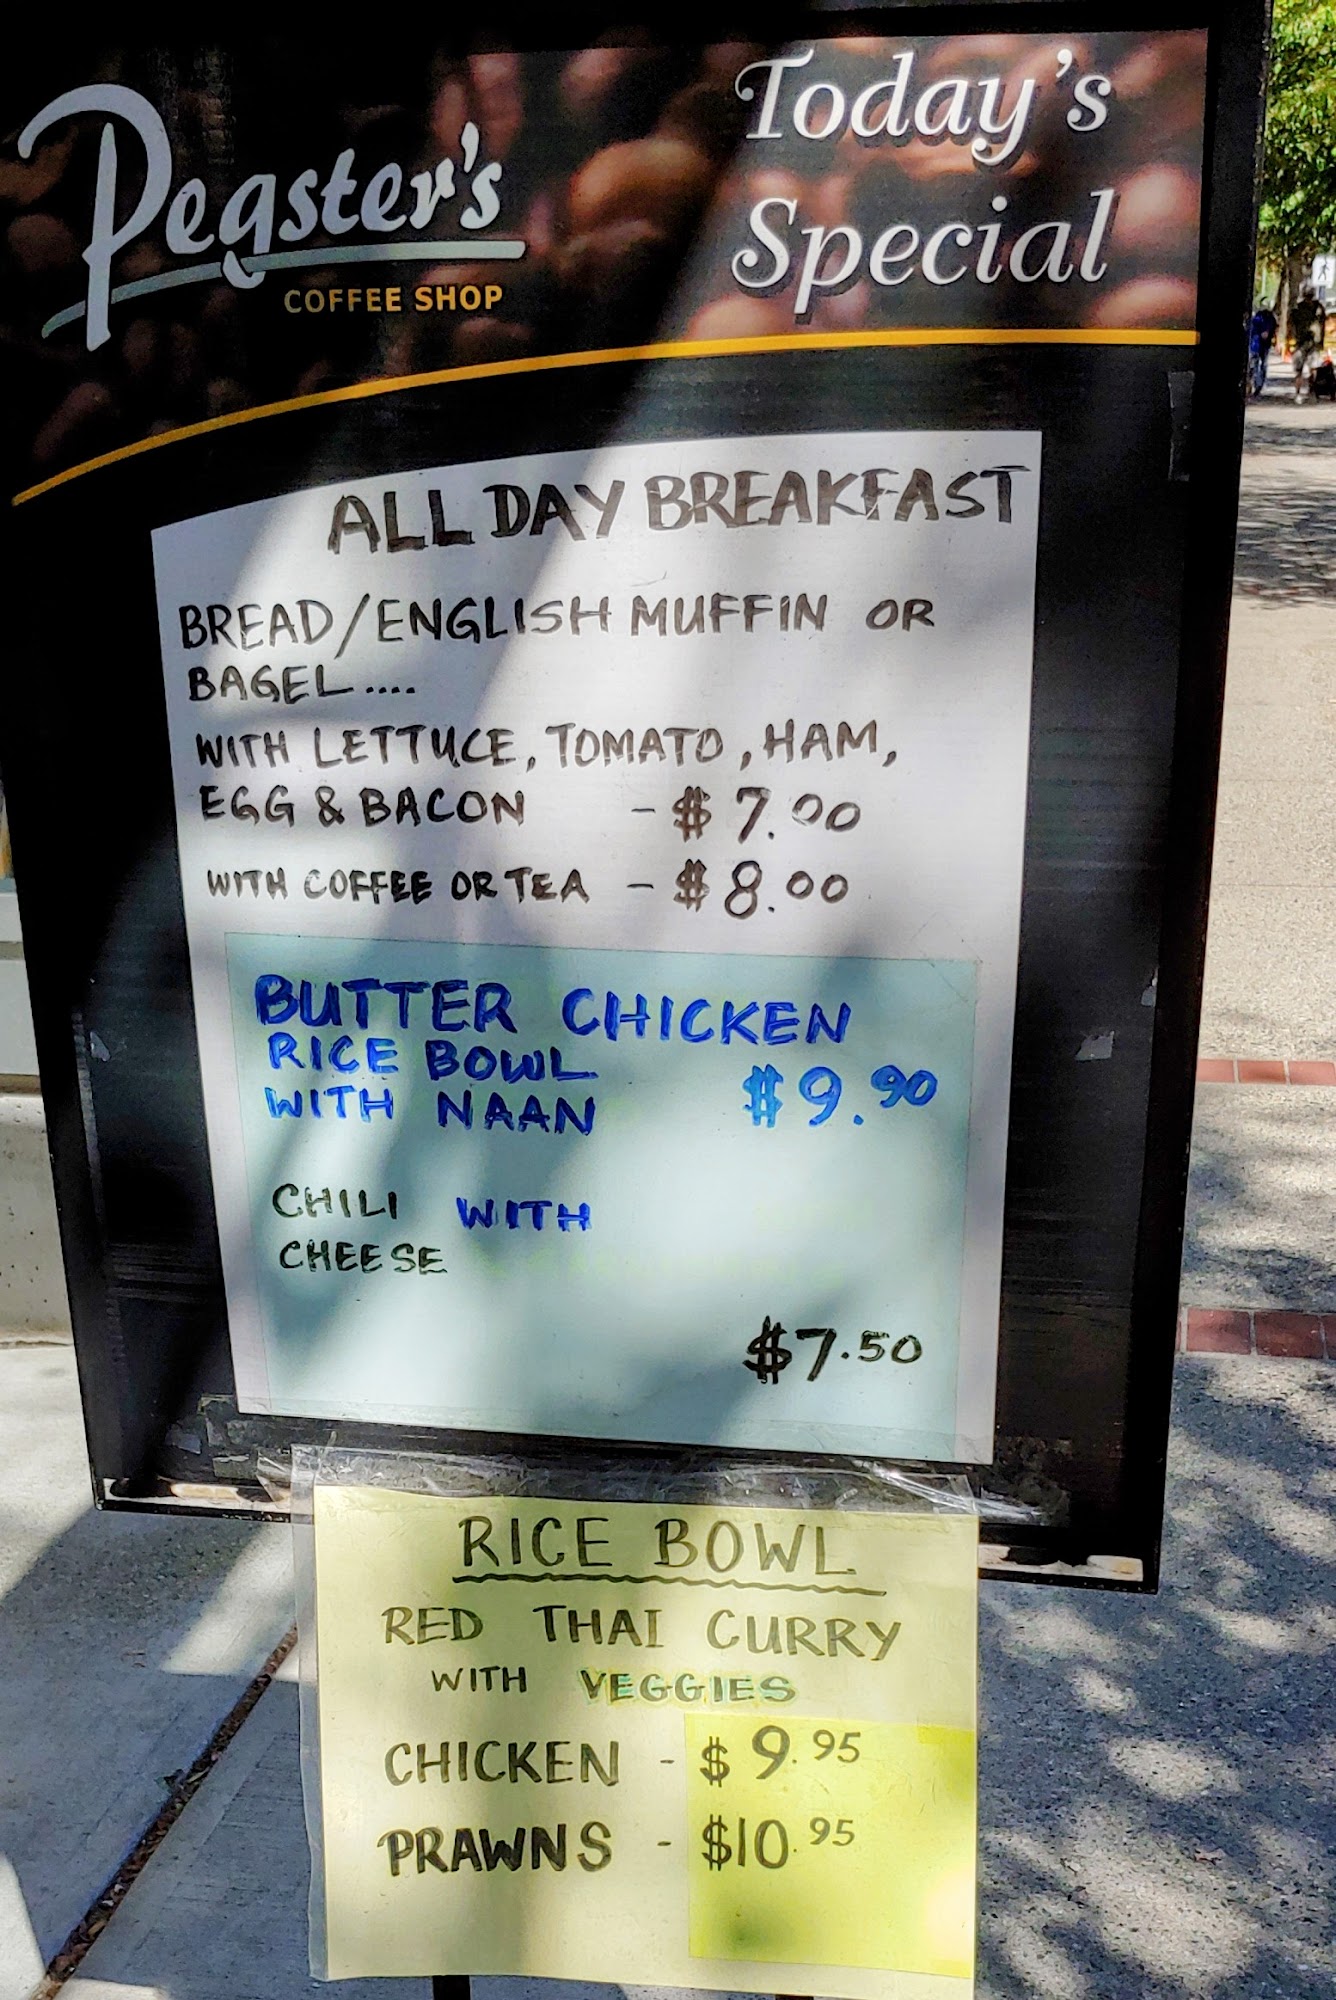 Pegster's
COFFEE SHOP
Today's
Special
ALL DAY BREAKFAST
BREAD/ENGLISH MUFFIN OR
BAGEL....
WITH LETTUCE, TOMATO, HAM,
EGG & BACON - $7.00
WITH COFFEE OR TEA - $8.00
BUTTER CHICKEN
RICE BOWL
WITH NAAN $9.90
CHILI WITH
CHEESE
$7.50
RICE BOWL
RED THAI CURRY
WITH VEGGIES
CHICKEN - $9.95
PRAWNS - $10.95